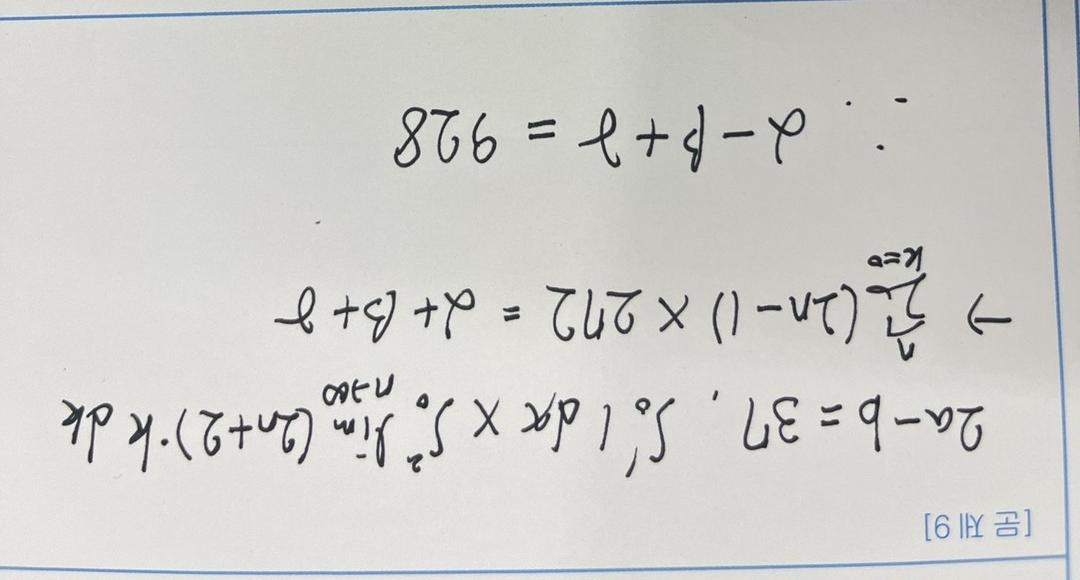 [문제 9]
2a-b=37, ∫₀¹ 1 dx × ∫₀² lim_{n→∞} (2n+2)·k dk
→ ∑_{k=0}^{n} (2n-11) × 272 = α+β+γ
∴ α-β+γ = 928